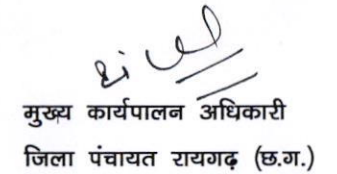 मुख्य कार्यपालन अधिकारी
जिला पंचायत रायगढ़ (छ.ग.)